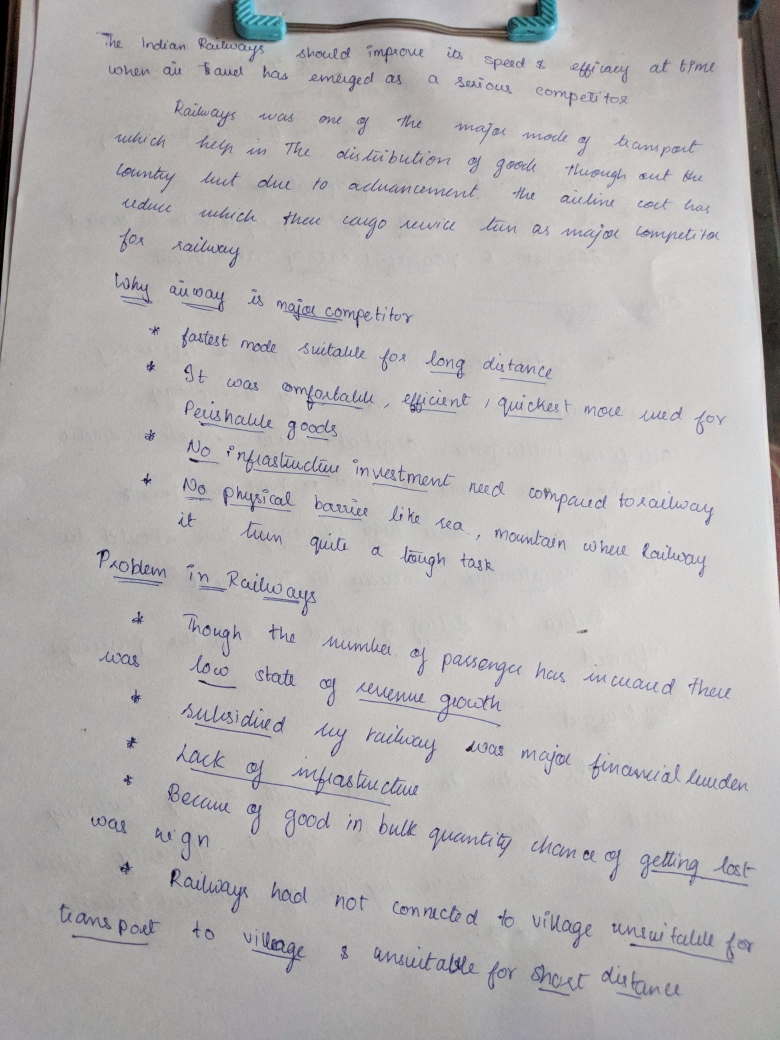 The Indian Railways should improve its speed & efficacy at time
when air travel has emerged as a serious competitor
Railways was one of the major mode of transport
which help in The distribution of goods through out the
country but due to advancement the airline cost has
reduce which their cargo service turn as major competitor
for railway
Why airway is major competitor
* fastest mode suitable for long distance
* It was comfortable, efficient, quickest more used for
Perishable goods
* No infrastructure investment need compared to railway
* No physical barrier like sea, mountain where Railway
it turn quite a tough task
Problem in Railways
* Though the number of passenger has increased there
was low state of revenue growth
* subsidised by railway was major financial burden
* Lack of infrastructure
* Because of good in bulk quantity chance of getting lost
was
* Railways had not connected to village unsuitable for
transport to village & unsuitable for short distance